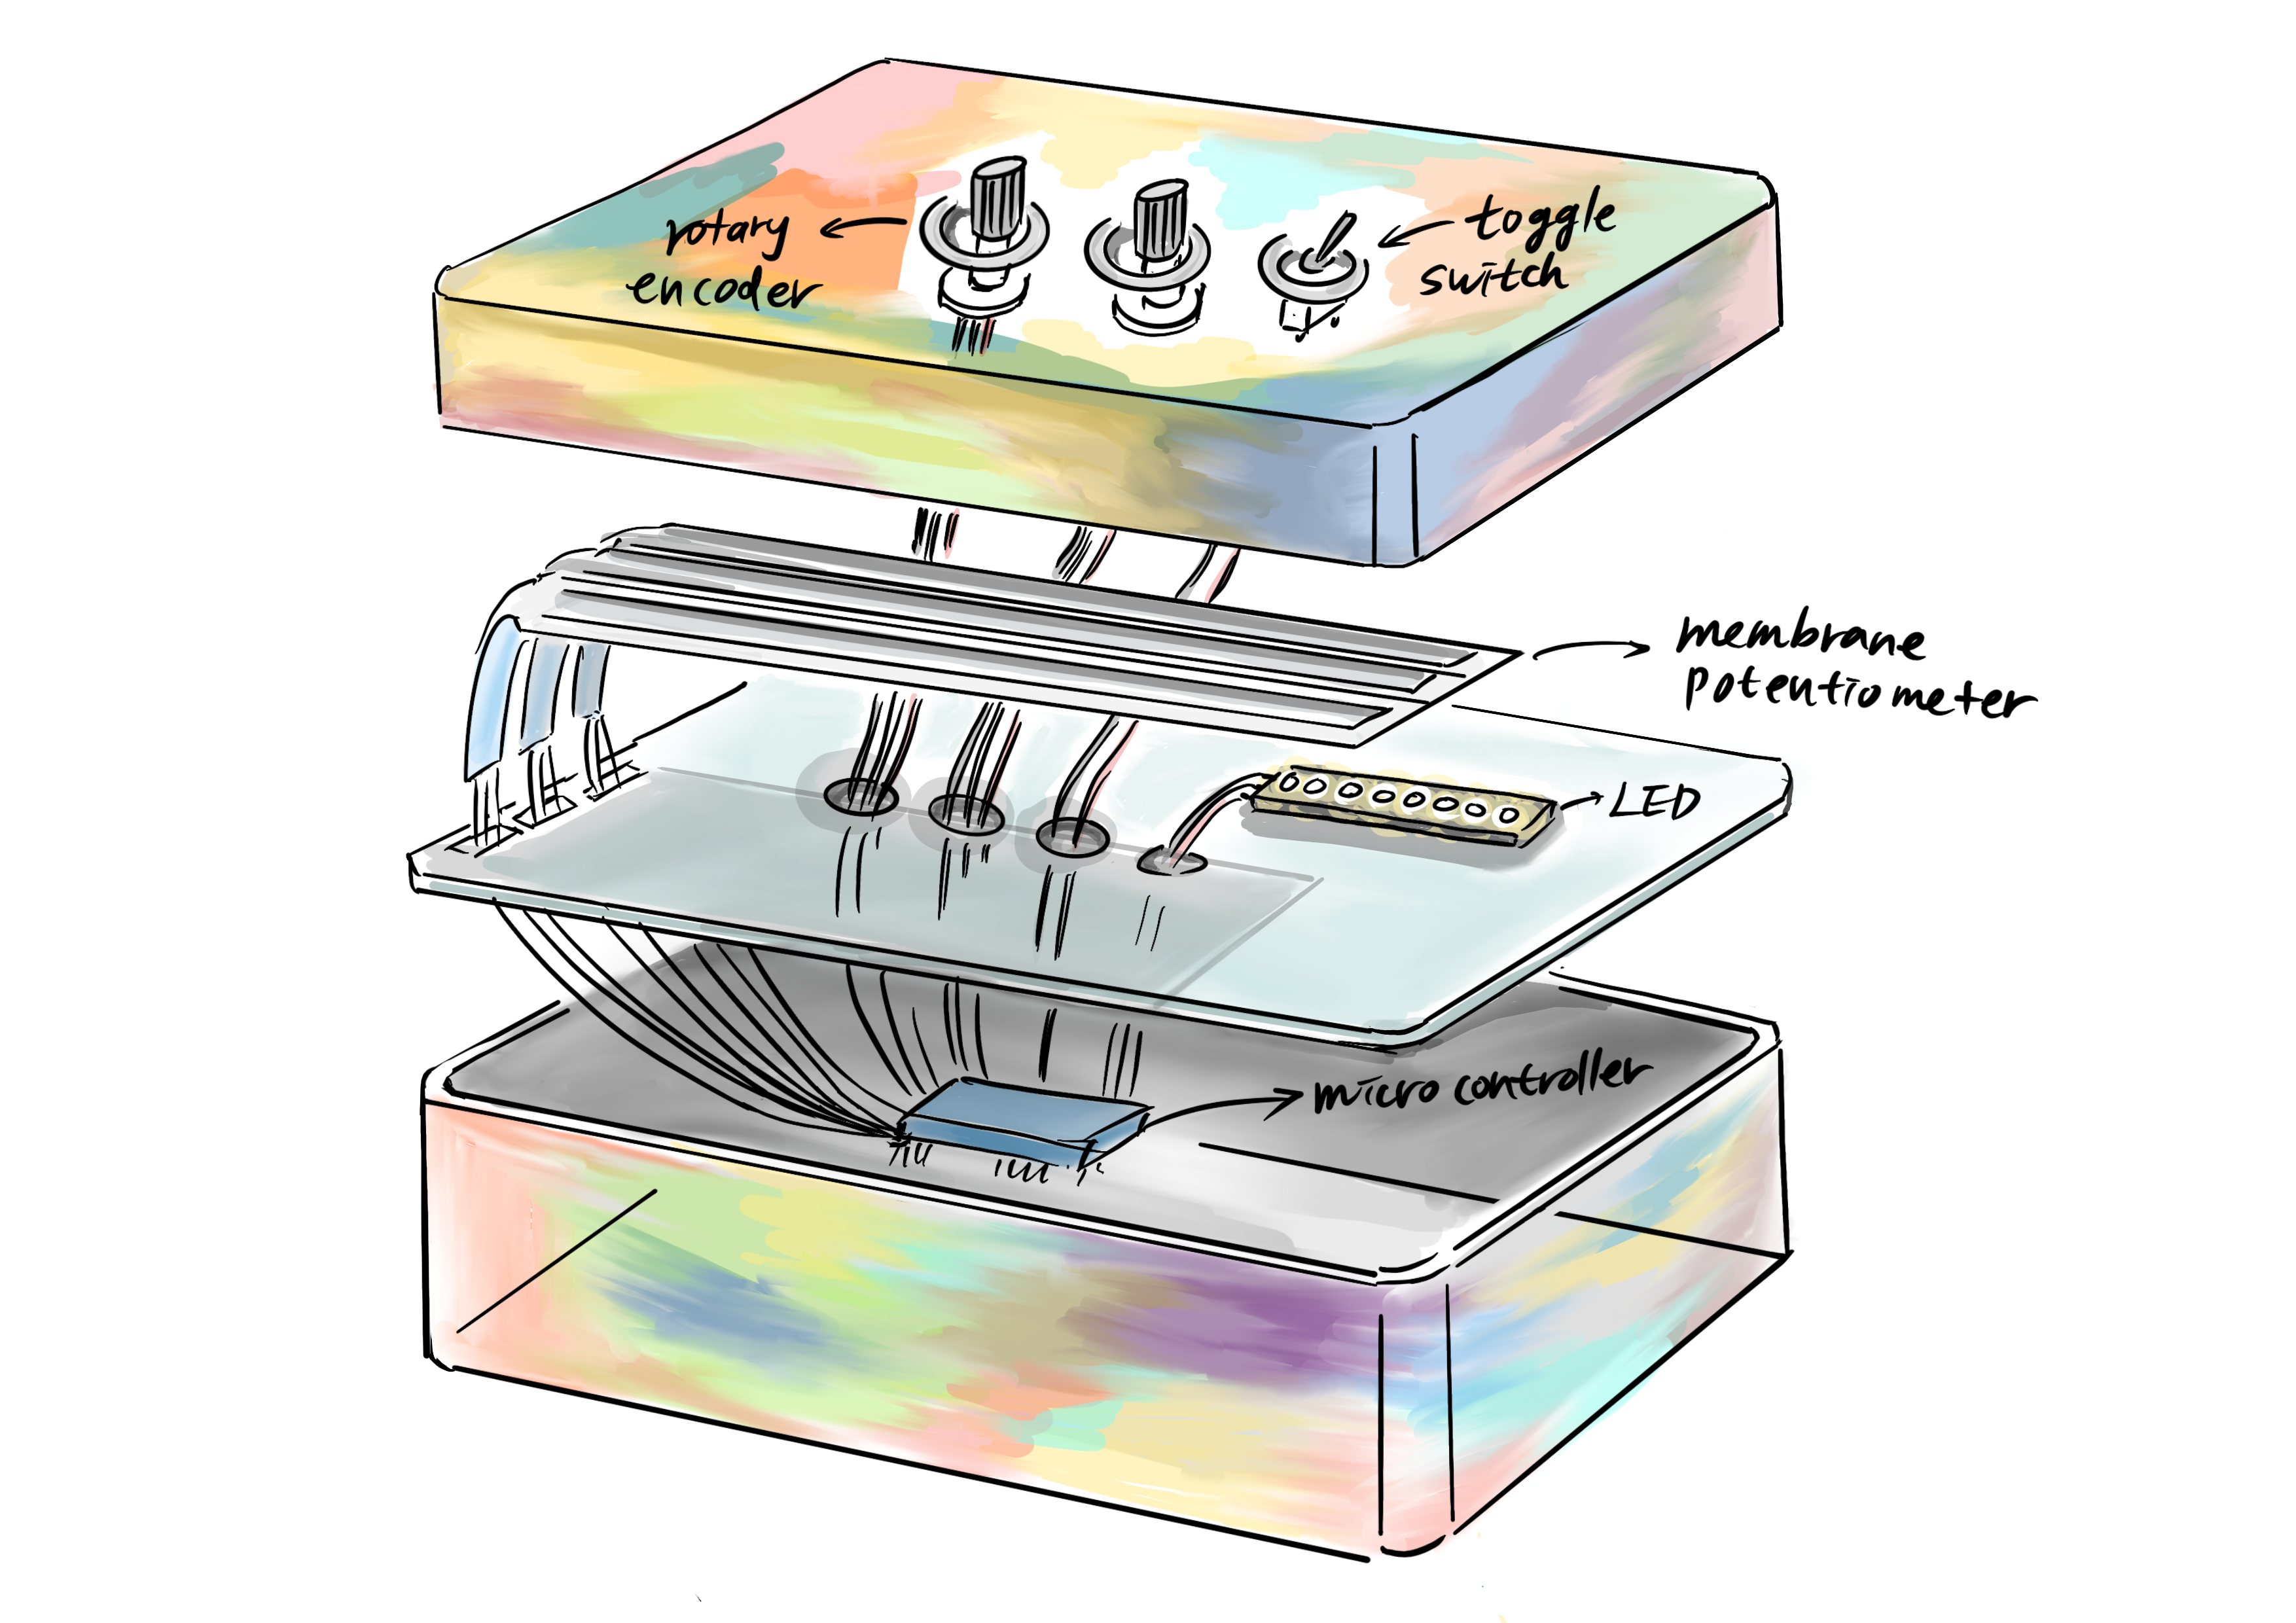 rotary
encoder
toggle
switch
membrane
potentiometer
LED
micro controller